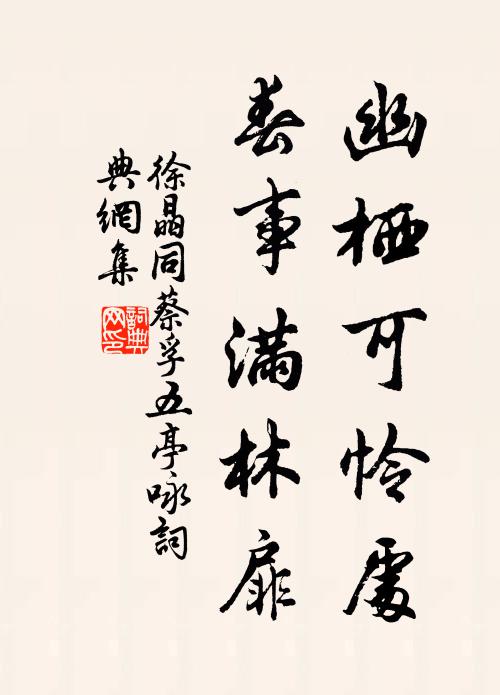 幽栖可怜處
春事满林扉
徐晶同蔡孚五亭咏詞
典網集
詞典
网印